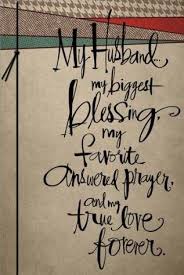 My Husband...
my biggest
blessing,
my
favorite
answered prayer,
and my
true love
forever.